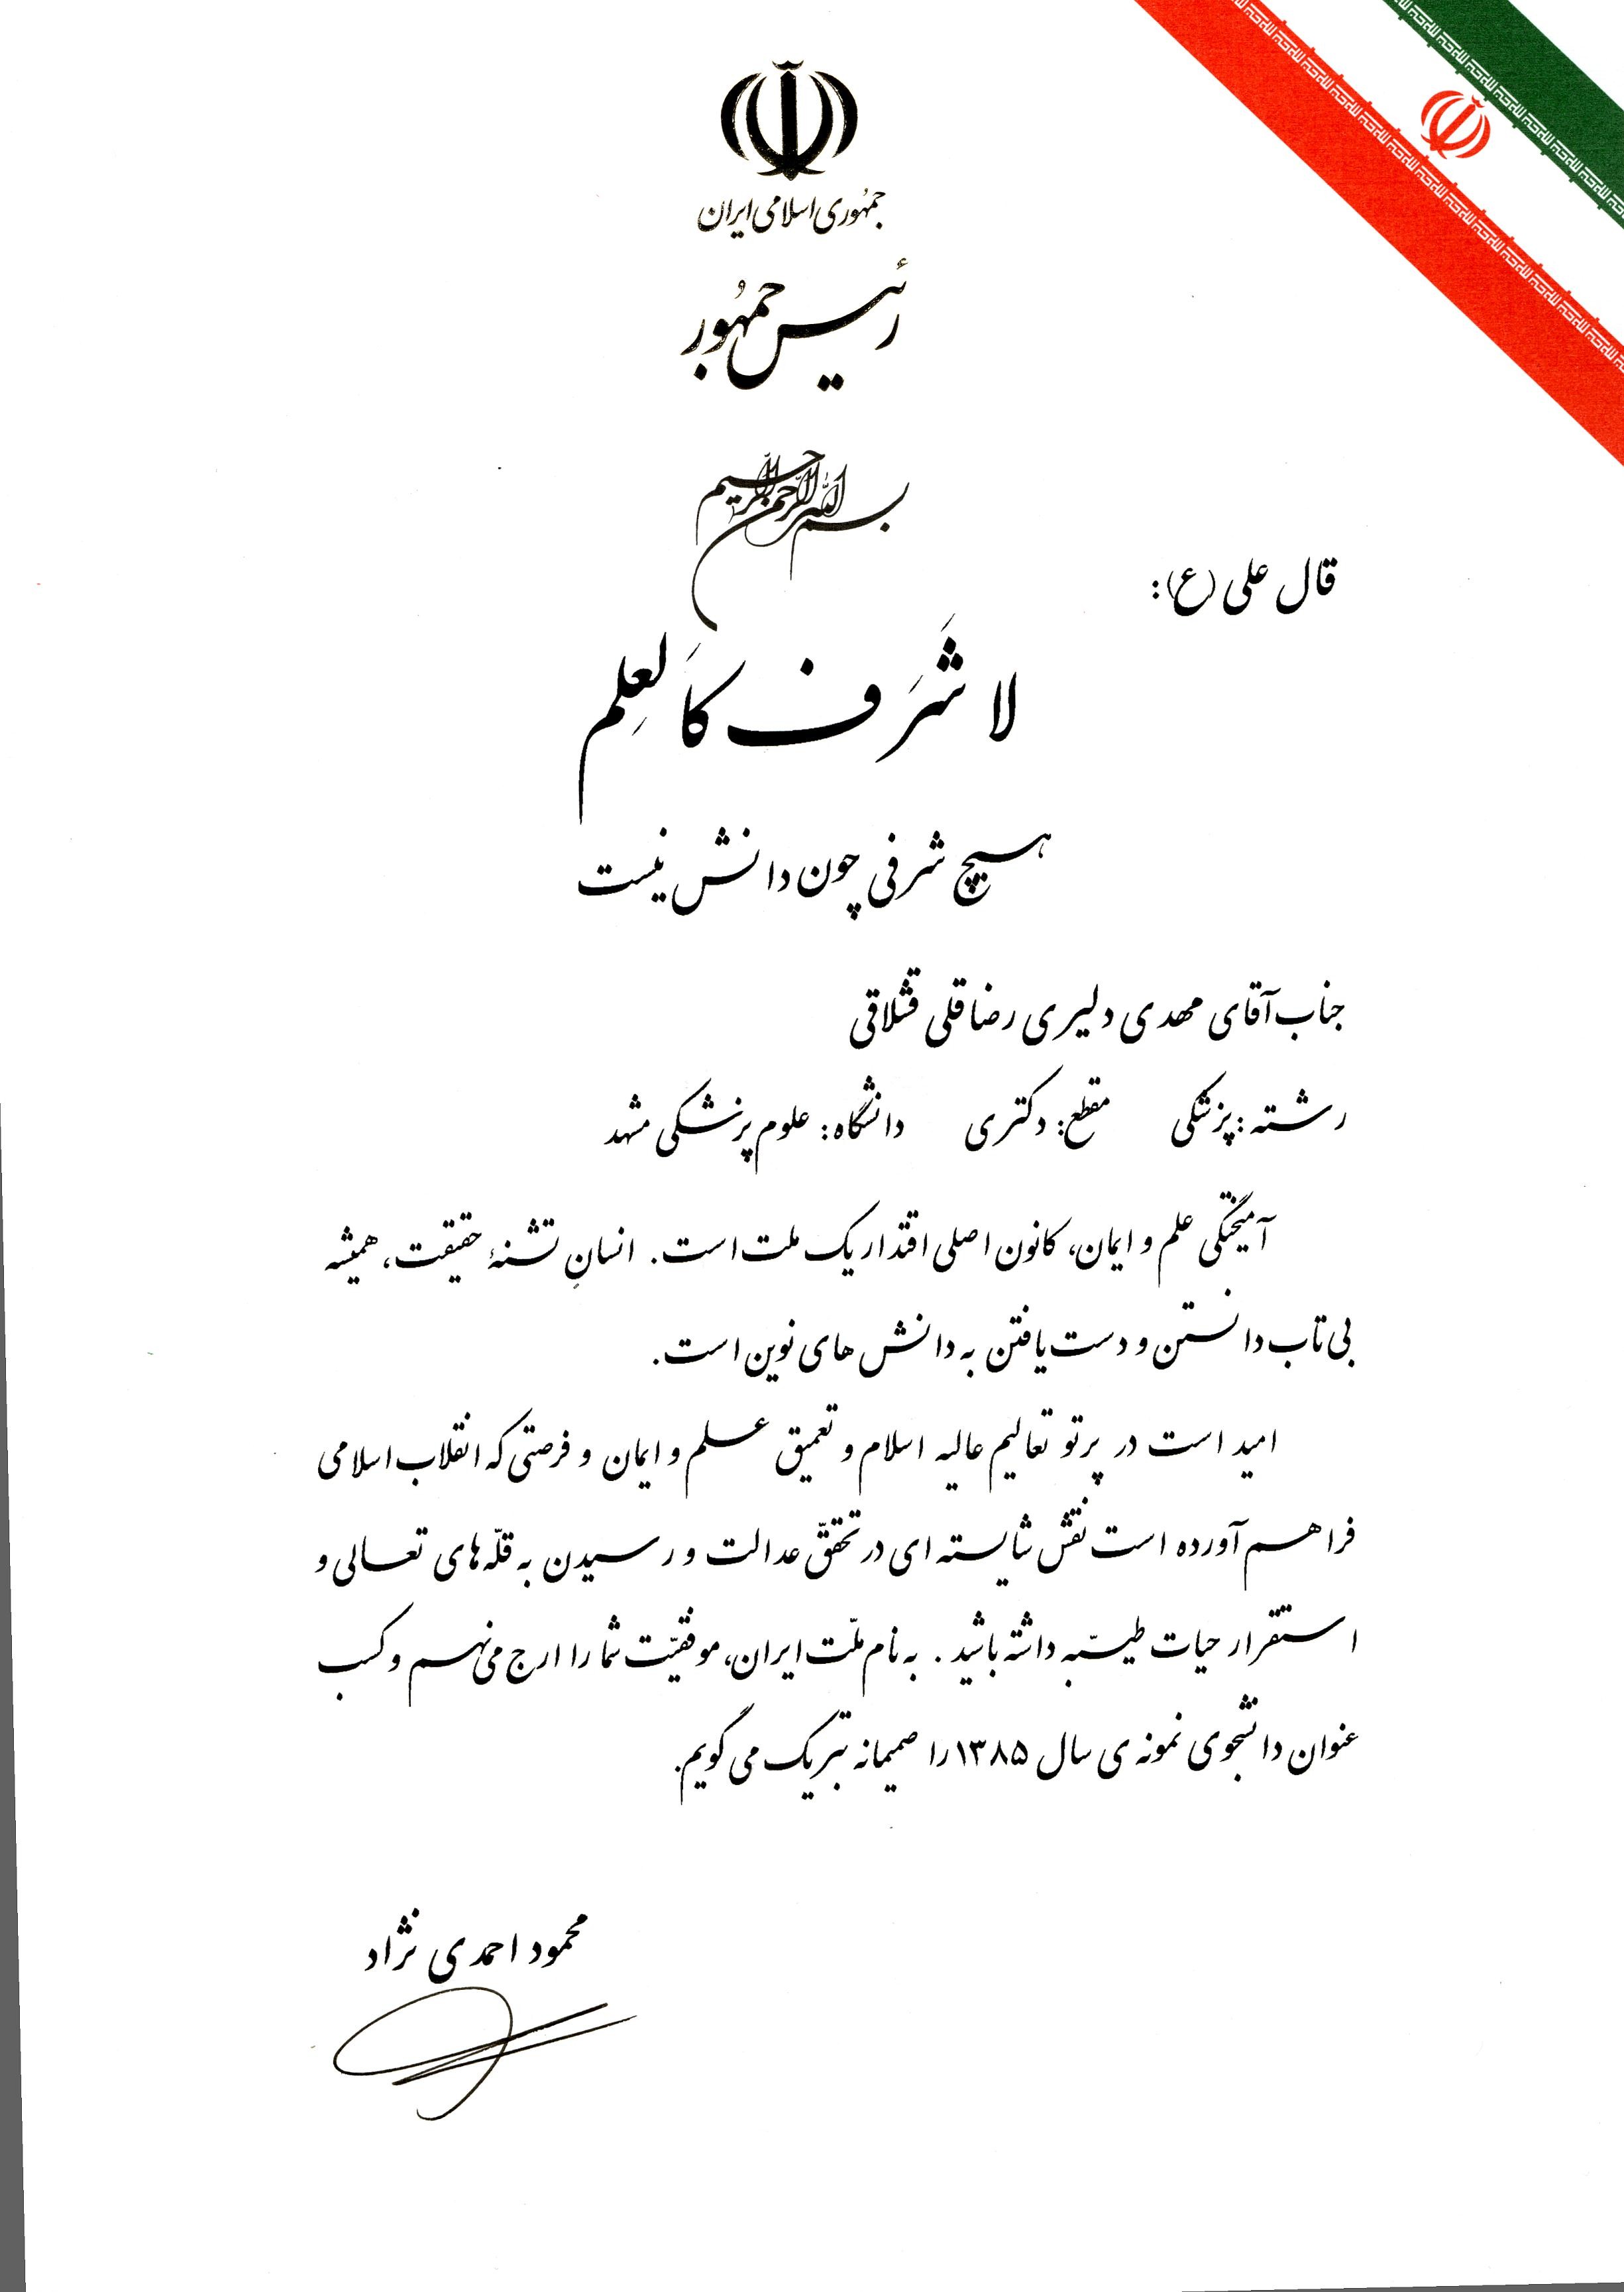 جمهوری اسلامی ایران
رئیس جمهور
بسم الله الرحمن الرحیم
قال علی (ع):
لا شَرَف کَالعِلم
هیچ شرفی چون دانش نیست
جناب آقای مهدی دلیری رضاقلی قشلاقی
رشته: پزشکی مقطع: دکتری دانشگاه: علوم پزشکی مشهد
آمیختگی علم و ایمان، کانون اصلی اقتدار یک ملت است. انسانِ تشنۀ حقیقت، همیشه
بی تاب دانستن و دست یافتن به دانش های نوین است.
امید است در پرتو تعالیم عالیه اسلام و تعمیق علم و ایمان و فرصتی که انقلاب اسلامی
فراهم آورده است نقش شایسته ای در تحقّق عدالت و رسیدن به قلّه های تعالی و
استقرار حیات طیّبه داشته باشید. به نام ملّت ایران، موفقیّت شما را ارج می نهم و کسب
عنوان دانشجوی نمونه ی سال ۱۳۸۵ را صمیمانه تبریک می گویم.
محمود احمدی نژاد